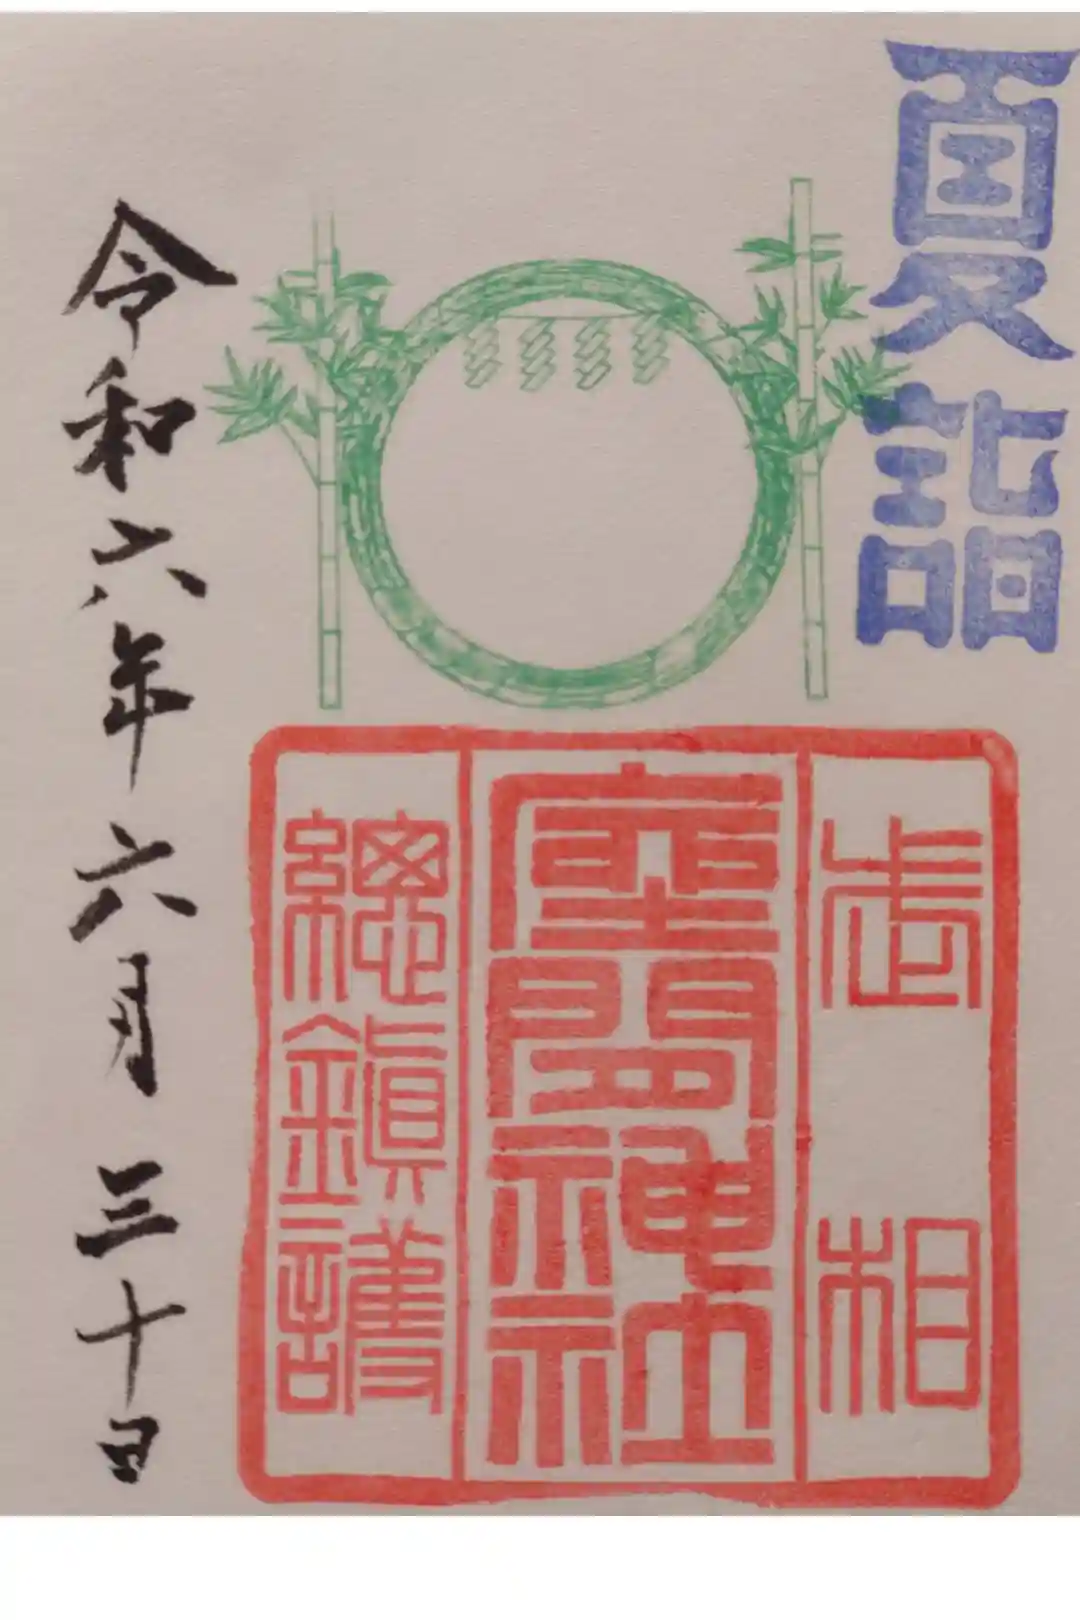 夏詣
武相
座間神社
總鎮護
令和六年六月三十日